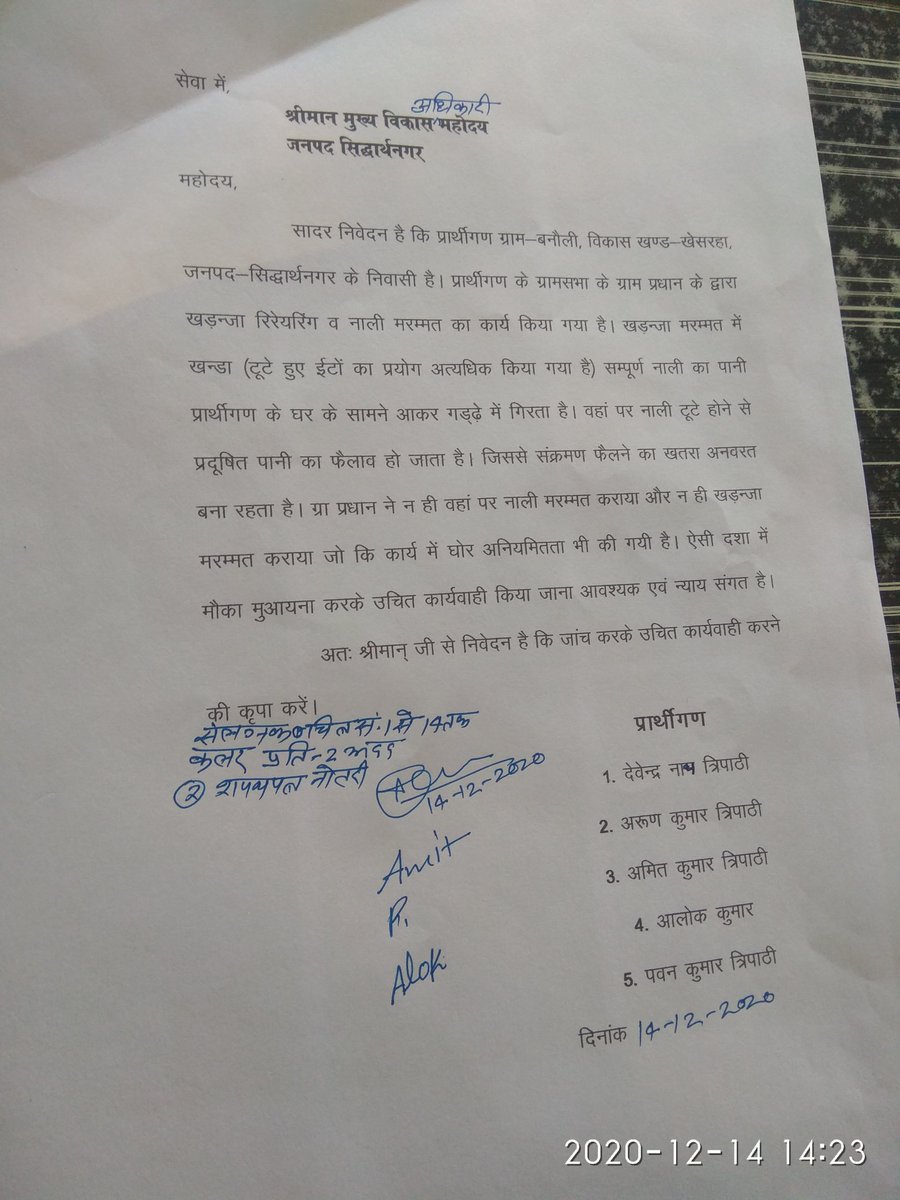 सेवा में,
अधिकारी
श्रीमान मुख्य विकास महोदय
जनपद सिद्धार्थनगर
महोदय,
सादर निवेदन है कि प्रार्थीगण ग्राम–बनौली, विकास खण्ड–खेसरहा,
जनपद–सिद्धार्थनगर के निवासी है। प्रार्थीगण के ग्रामसभा के ग्राम प्रधान के द्वारा
खड़न्जा रिरेयरिंग व नाली मरम्मत का कार्य किया गया है। खड़न्जा मरम्मत में
खन्डा (टूटे हुए ईटों का प्रयोग अत्यधिक किया गया है) सम्पूर्ण नाली का पानी
प्रार्थीगण के घर के सामने आकर गड्ढ़े में गिरता है। वहां पर नाली टूटे होने से
प्रदूषित पानी का फैलाव हो जाता है। जिससे संक्रमण फैलने का खतरा अनवरत
बना रहता है। ग्रा प्रधान ने न ही वहां पर नाली मरम्मत कराया और न ही खड़न्जा
मरम्मत कराया जो कि कार्य में घोर अनियमितता भी की गयी है। ऐसी दशा में
मौका मुआयना करके उचित कार्यवाही किया जाना आवश्यक एवं न्याय संगत है।
अतः श्रीमान् जी से निवेदन है कि जांच करके उचित कार्यवाही करने
की कृपा करें।
सं. 1 से 14 तक
कलर प्रति-2 अदद
② शपथपत्र नोटरी
14-12-2020
Amit
P.
Alok
प्रार्थीगण
1. देवेन्द्र नाथ त्रिपाठी
2. अरूण कुमार त्रिपाठी
3. अमित कुमार त्रिपाठी
4. आलोक कुमार
5. पवन कुमार त्रिपाठी
दिनांक 14-12-2020
2020-12-14 14:23